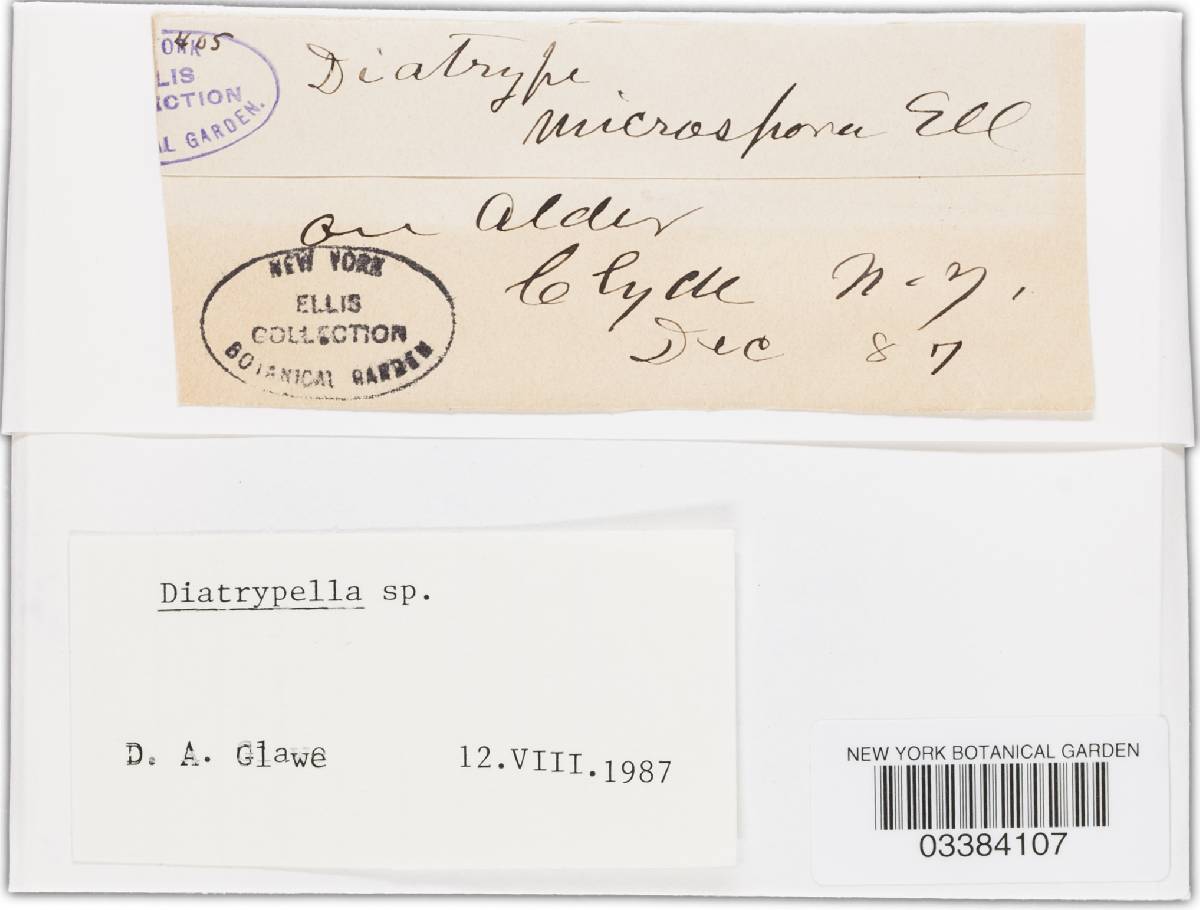 405
ORK
LIS
CTION
AL GARDEN.
Diatrype
microspora Ell
on Alder
Clyde N.Y.
Dec 87
NEW YORK
ELLIS
COLLECTION
BOTANICAL GARDEN
Diatrypella sp.
D. A. Glawe 12.VIII.1987
NEW YORK BOTANICAL GARDEN
03384107